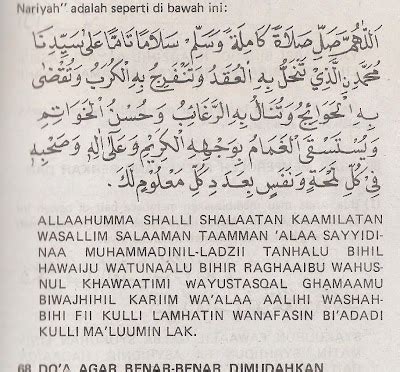 Nariyah" adalah seperti di bawah ini:
اَللّٰهُمَّ صَلِّ صَلَاةً كَامِلَةً وَسَلِّمْ سَلَامًا تَامًّا عَلَى سَيِّدِنَا
مُحَمَّدِنِ الَّذِيْ تَنْحَلُّ بِهِ الْعُقَدُ وَتَنْفَرِجُ بِهِ الْكُرَبُ وَتُقْضَى
بِهِ الْحَوَائِجُ وَتُنَالُ بِهِ الرَّغَائِبُ وَحُسْنُ الْخَوَاتِمِ
وَيُسْتَسْقَى الْغَمَامُ بِوَجْهِهِ الْكَرِيْمِ وَعَلَى اٰلِهِ وَصَحْبِهِ
فِيْ كُلِّ لَمْحَةٍ وَنَفَسٍ بِعَدَدِ كُلِّ مَعْلُوْمٍ لَكَ.
ALLAAHUMMA SHALLI SHALAATAN KAAMILATAN
WASALLIM SALAAMAN TAAMMAN 'ALAA SAYYIDI-
NAA MUHAMMADINIL-LADZII TANHALU BIHIL
HAWAIJU WATUNAALU BIHIR RAGHAAIBU WAHUS-
NUL KHAWAATIMI WAYUSTASQAL GHAMAAMU
BIWAJHIHIL KARIIM WA'ALAA AALIHI WASHAH-
BIHI FII KULLI LAMHATIN WANAFASIN BI'ADADI
KULLI MA'LUUMIN LAK.
68 DO'A AGAR BENAR-BENAR DIMUDAHKAN